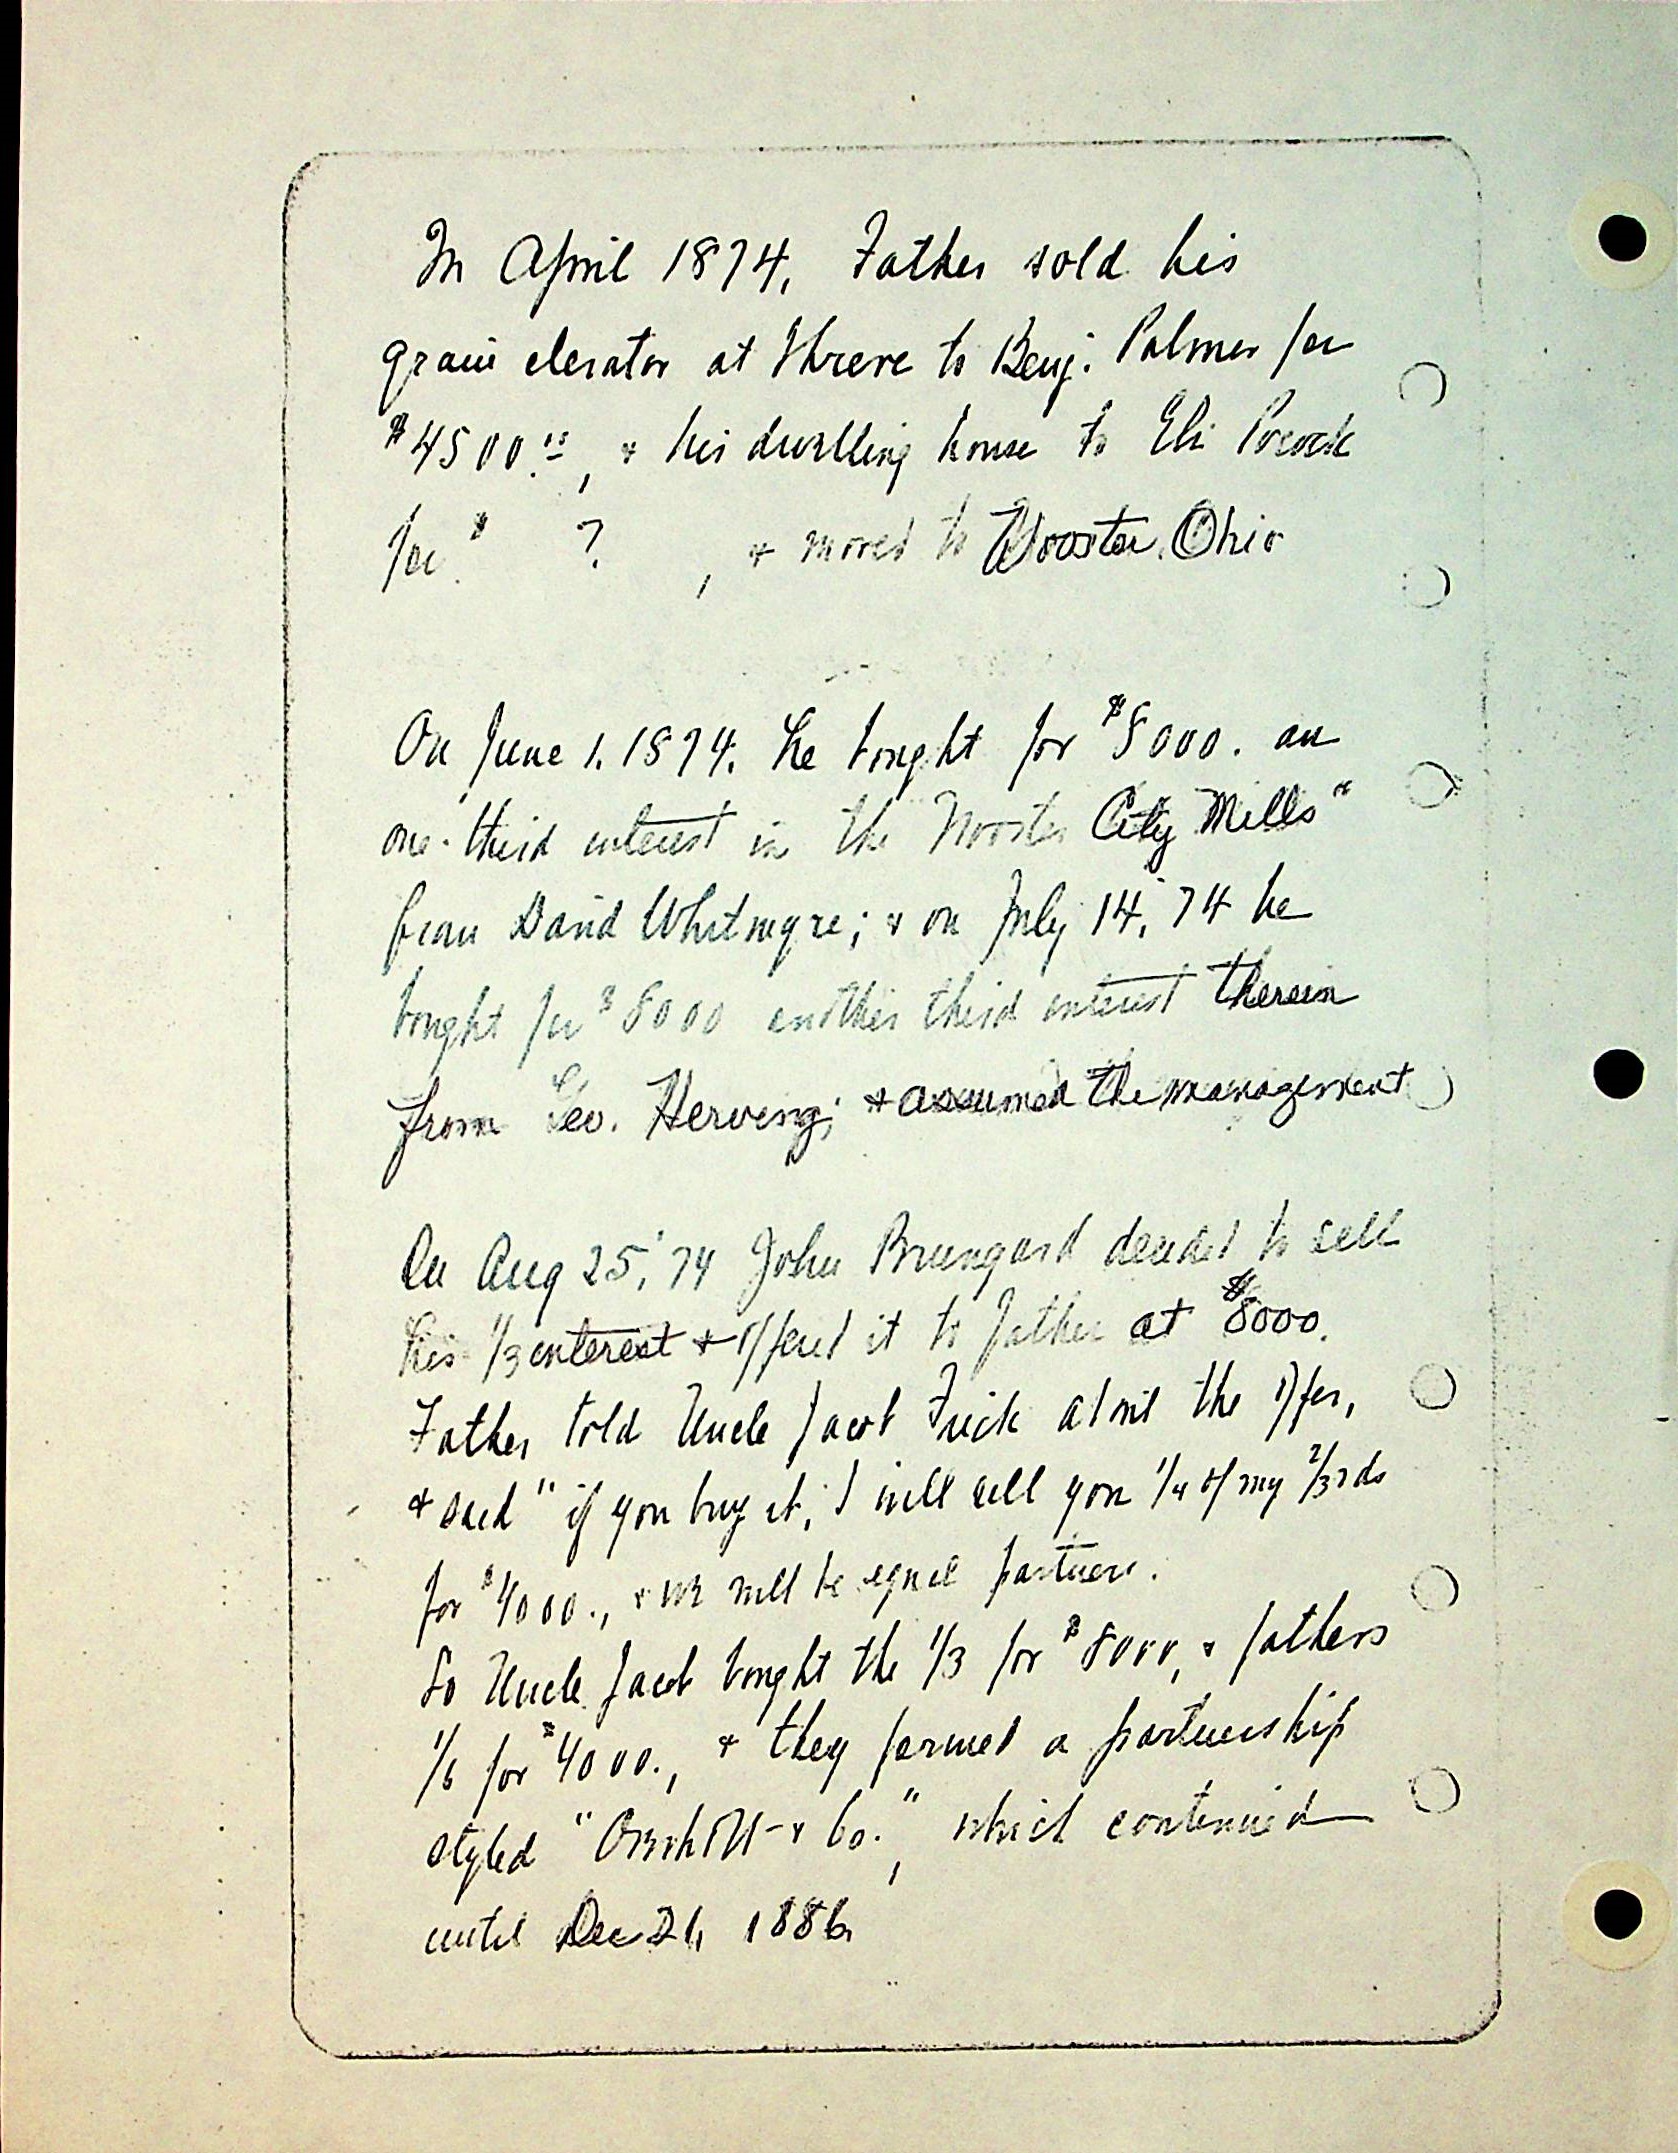 In April 1874, Father sold his
grain elevator at Shreve to Benj. Palmer for
$4500.00, & his dwelling house to Eli Pocock
for $ ? , & moved to Wooster, Ohio
On June 1, 1874, he bought for $8000. an
one-third interest in the Wooster City Mills"
from David Whitmyre; & on July 14, 74 he
bought for $8000 another third interest therein
from Geo. Herving; & assumed the management
On Aug 25, '74 John Brungard decided to sell
his 1/3 interest & offered it to father at $8000.
Father told Uncle Jacob Frick about the offer,
& said "if you buy it, I will sell you 1/4 of my 2/3rds
for $4000., & we will be equal partners.
So Uncle Jacob bought the 1/3 for $8000, & fathers
1/6 for $4000., & they formed a partnership
styled " & Co.", which continued
until Dec 21, 1886